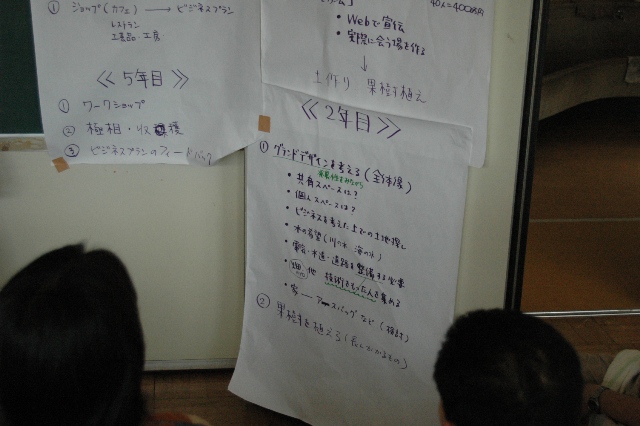 ① ショップ(カフェ) → ビジネスプラン
レストラン
工芸品・工房
≪5年目≫
① ワークショップ
② 極相・収穫
③ ビジネスプランのフィードバック
・Webで宣伝
・実際に会う場を作る
↓
土作り 果樹を植え
≪2年目≫
① グランドデザインを考える(全体像)
・共有スペースは?
・個人スペースは?
・ビジネスを考えた上での土地探し
・水の希望(川の水 海の水)
・電気・水道・道路を整備する必要
・他 技術をもった人を集める
・家 ― アースバッグなど(検討)
② 果樹を植える